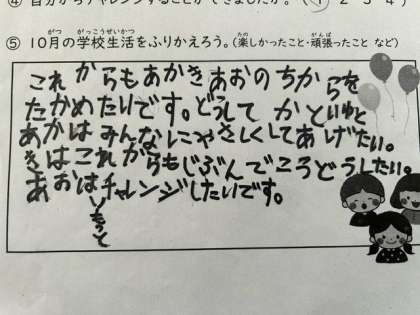 ④ 自分からチャレンジすることができましたか。 (1 2 3 4)
⑤ 10月の学校生活をふりかえろう。(楽しかったこと・頑張ったこと など)
これからもあかきあおのちからを
たかめたいです。どうしてかというと
あかはみんなにやさしくしてあげたい。
きはこれからもじぶんでこうどうしたい。
あおはチャレンジしたいです。